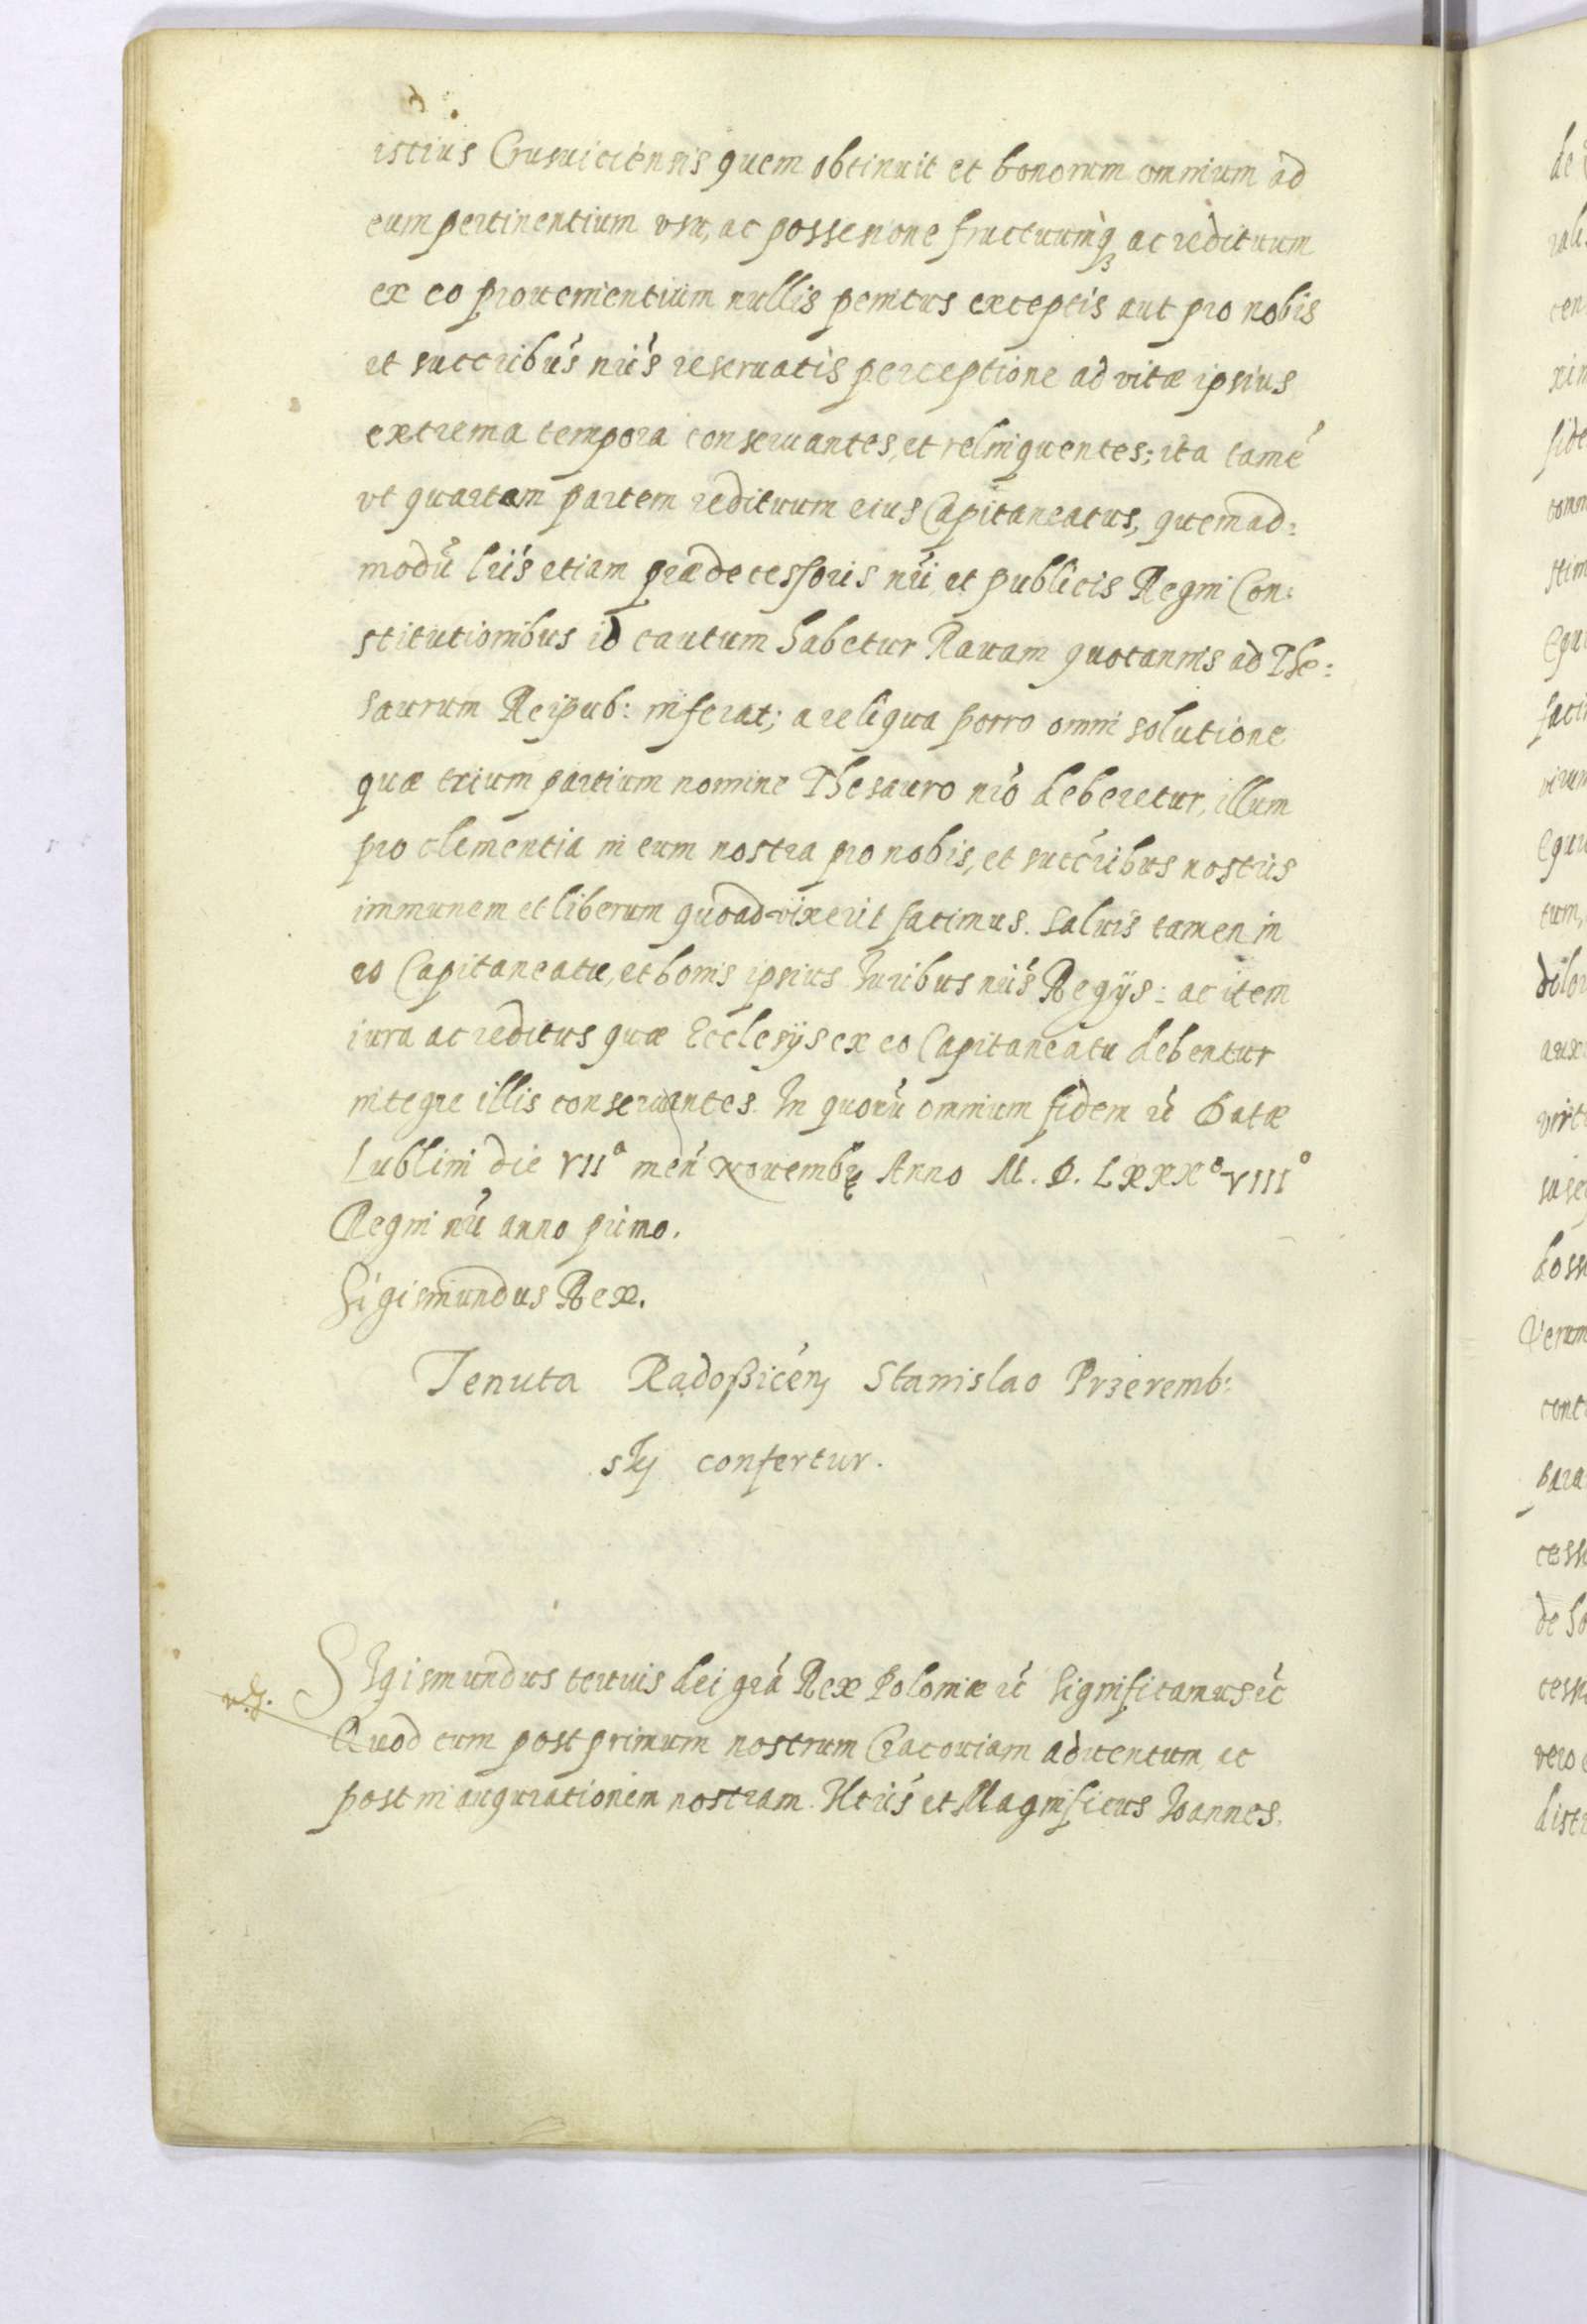 istius Crusuiciensis quem obtinuit et bonorum omnium ad
eum pertinentium usu, ac possesione fructuumq3 ac redituum
ex eo prouenientium nullis penitus exceptis aut pro nobis
et succribus nris reseruatis perceptione ad vitæ ipsius
extrema tempora conseruantes, et relinquentes; ita tamē
vt quartam partem redituum eius Capitaneatus, quemad:
modū lris etiam prædecessoris nri, et publicis Regni Con:
stitutionibus id cautum habetur Rauam quotannis ad The:
saurum Reipub: inferat; a reliqua porro omni solutione
quæ trium partium nomine Thesauro nro deberetur, illum
pro clementia in eum nostra pro nobis, et succribus nostris
immunem et liberum quoad vixerit facimus. Saluis tamen in
eo Capitaneatu, et bonis ipsius Iuribus nris Regijs: ac item
iura ac reditus quæ Ecclesijs ex eo Capitaneatu debentur
integre illis conseruantes. In quorū omnium fidem rc̄ Datæ
Lublini die VIIᵃ men̄ Nouembr Anno M. D. LXXXᵒVIIIᵒ
Regni nri anno primo.
Sigismundus Rex.
Tenuta Radoßicen̄ Stanislao Przeremb:
skj confertur.
SIgismundus tertius dei grā Rex Poloniæ rc̄ Significamus rc̄
Quod cum post primum nostrum Cracouiam aduentum, ac
post inaugurationem nostram. Illris et Magnificus Ioannes.